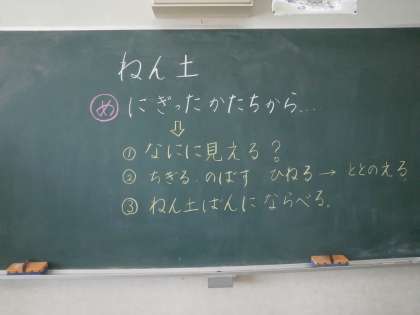 ねん土
め にぎったかたちから...
⇩
① なにに見える?
② ちぎる のばす ひねる → ととのえる。
③ ねん土ばんにならべる。